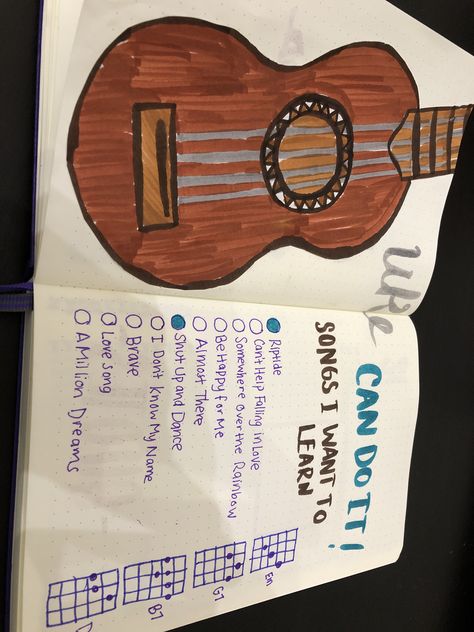 Uke CAN DO IT!
SONGS I WANT TO
LEARN
Riptide
Can't Help Falling in Love
Somewhere Over the Rainbow
Be Happy for Me
Almost There
Shut Up and Dance
I Don't Know My Name
Brave
Love Song
A Million Dreams
Em
G7
B7
D